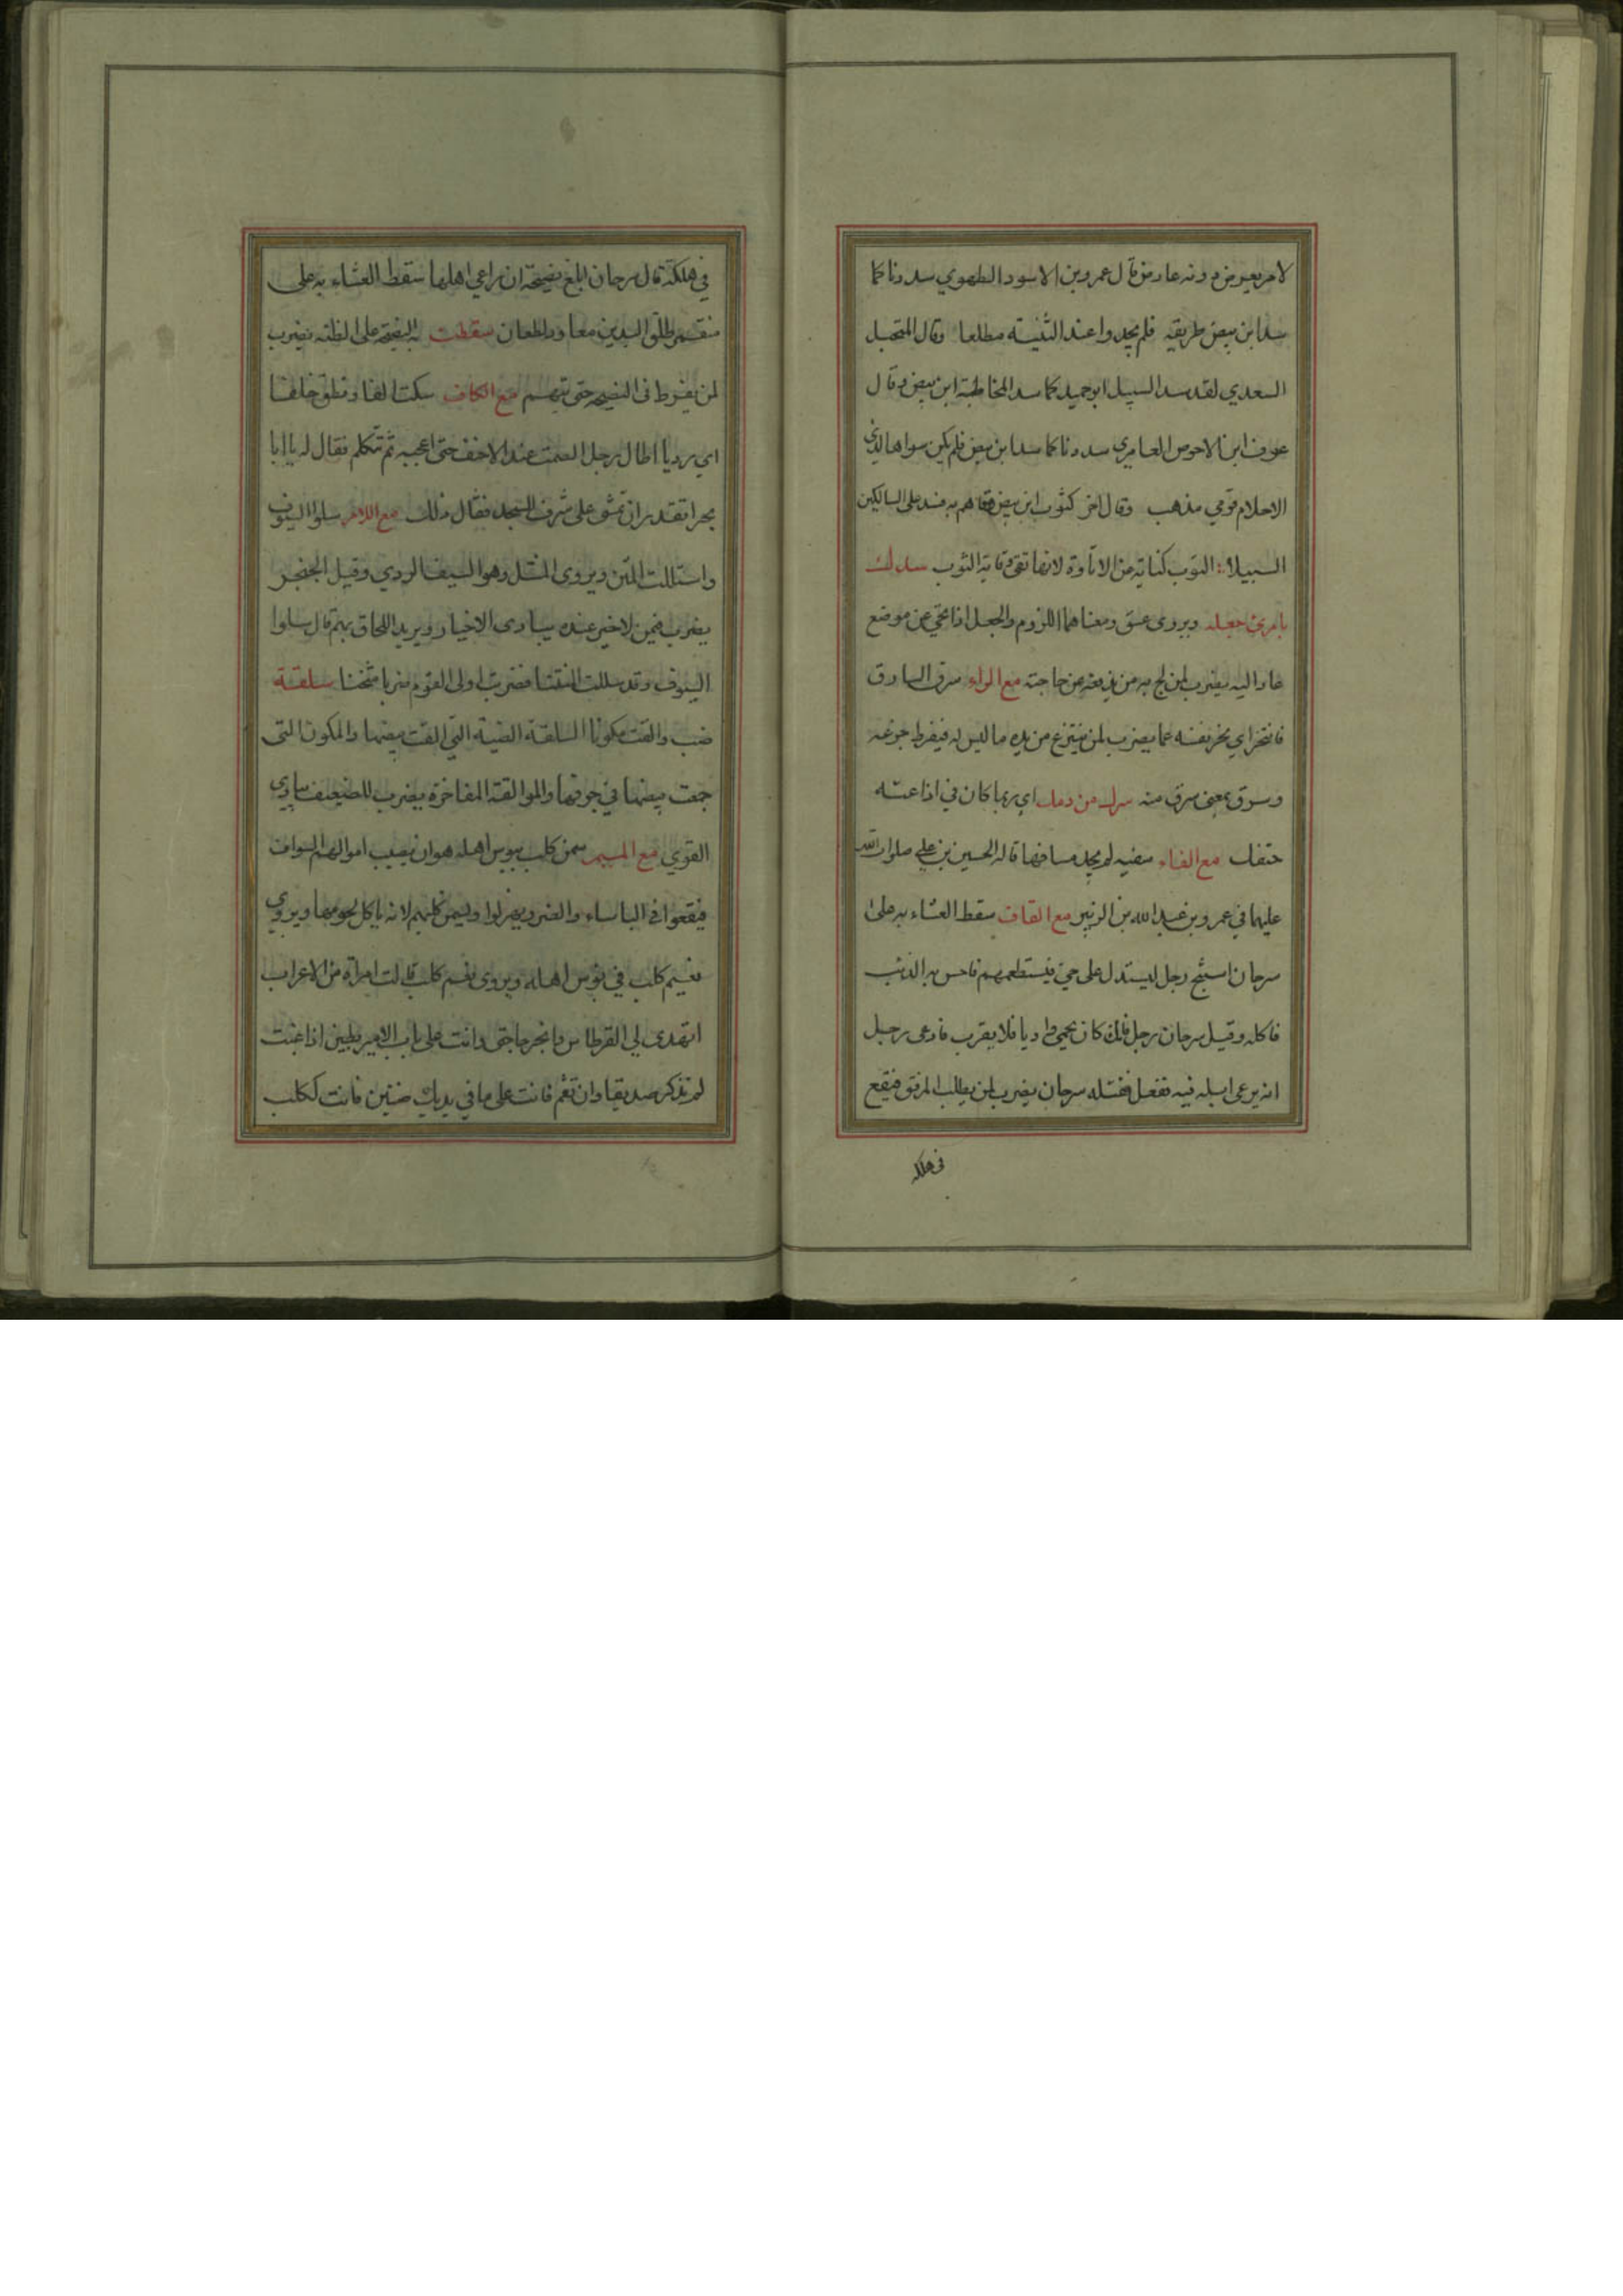 لامر يعرض دونه عارض قال عمرو بن الاسود الطهوي سددنا كما
سد ابن بيض طريقه فلم يجدوا عند الثنية مطلعا وقال المخبل
السعدي لقد سد السبيل ابو حميد كما سد المخاطبة ابن بيض وقال
عوف ابن الاحوص العامري سددنا كما سد ابن بيض فلم يكن سواها لذي
الاحلام قومي مذهب وقال اخر كثوب ابن بيض وقاهم به فسد على السالكين
السبيلا الثوب كناية من الاتاوة لانها تقي وقاية الثوب سدك
بامرئ جعله ويروى عسق ومعناهما اللزوم والجعل اذا نحي عن موضع
عاد اليه يضرب لمن لج به من يريغه عن حاجته مع الراء سرق السارق
فانتحر اي نحر نفسه غما يضرب لمن ينتزع من يده ما ليس له فيفرط جزعه
وسرق بمعنى سرق منه سرك من دمك اي ربما كان في اذاعته
حتفك مع الفاء سفيه لم يجد مسافها قاله الحسين بن علي صلوات الله
عليهما في عمرو بن عبد الله بن الزبير مع القاف سقط العشاء به على
سرحان استنبح رجل ليستدل على حي فيستطعمهم فاحس به الذئب
فاكله وقيل سرحان رجل فاتك كان يحمي واديا فلا يقرب فادعى رجل
انه يرعى ابله فيه ففعل فقتله سرحان يضرب لمن يطلب المرفق فيقع
في هلكه
في هلكة قال سرحان ابلغ نصيحة ان راعي اهلها سقط العشاء به على
متقمر طلق اليدين معاود لطعان سقطت به النصيحة على الظنه يضرب
لمن يفرط في النصيحة حتى يتهم مع الكاف سكت الفا ونطق خلفا
اي رديا اطال رجل الصمت عند الاحنف حتى اعجبه ثم تكلم فقال له يا ابا
بحر اتقدر ان تمشي على شرف المسجد فقال ذلك مع اللام سلوا السيوف
واستللت المنتن ويروى المنتل وهو السيف الردي وقيل الخنجر
يضرب فيمن لاخير عنده يساوى الاخيار ويريد اللحاق بهم قال سلوا
السيوف وقد سللت المنتنا فضربت اولى القوم ضربا مثخنا سلقة
ضب والقت مكونا السلقة الضبة التي القت بيضها والمكون التي
جمعت بيضها في جوفها والموالقة المفاخرة يضرب للضعيف يباري
القوي مع الميم سمن كلب ببوس اهله هو ان يصيب اموالهم السواف
فيقعوا في الباساء والضر ويهزلوا ويسمن كلبهم لانه ياكل لحومها ويروى
نعيم كلب في بوس اهله ويروى نعم كلب قالت امراة من الاعراب
اتهدى لي القرطاس وانجر حاجتي وانت على باب الامير بطين اذا غبت
لم تذكر صديقا وان تقم فانت على ما في يديك ضنين فانت ككلب